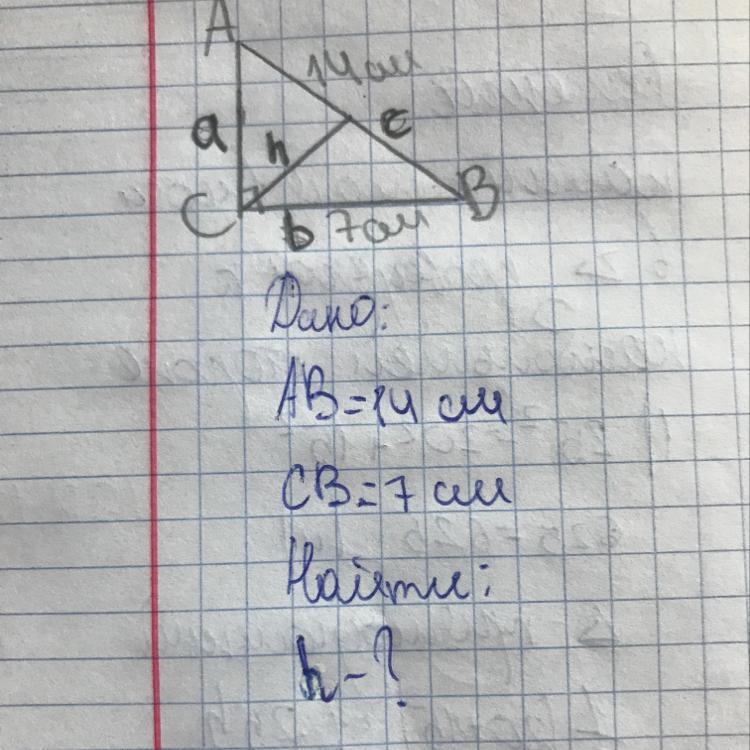 A
14 см
a
h
c
C
b 7 см
B
Дано:
AB=14 см
CB=7 см
Найти:
h-?